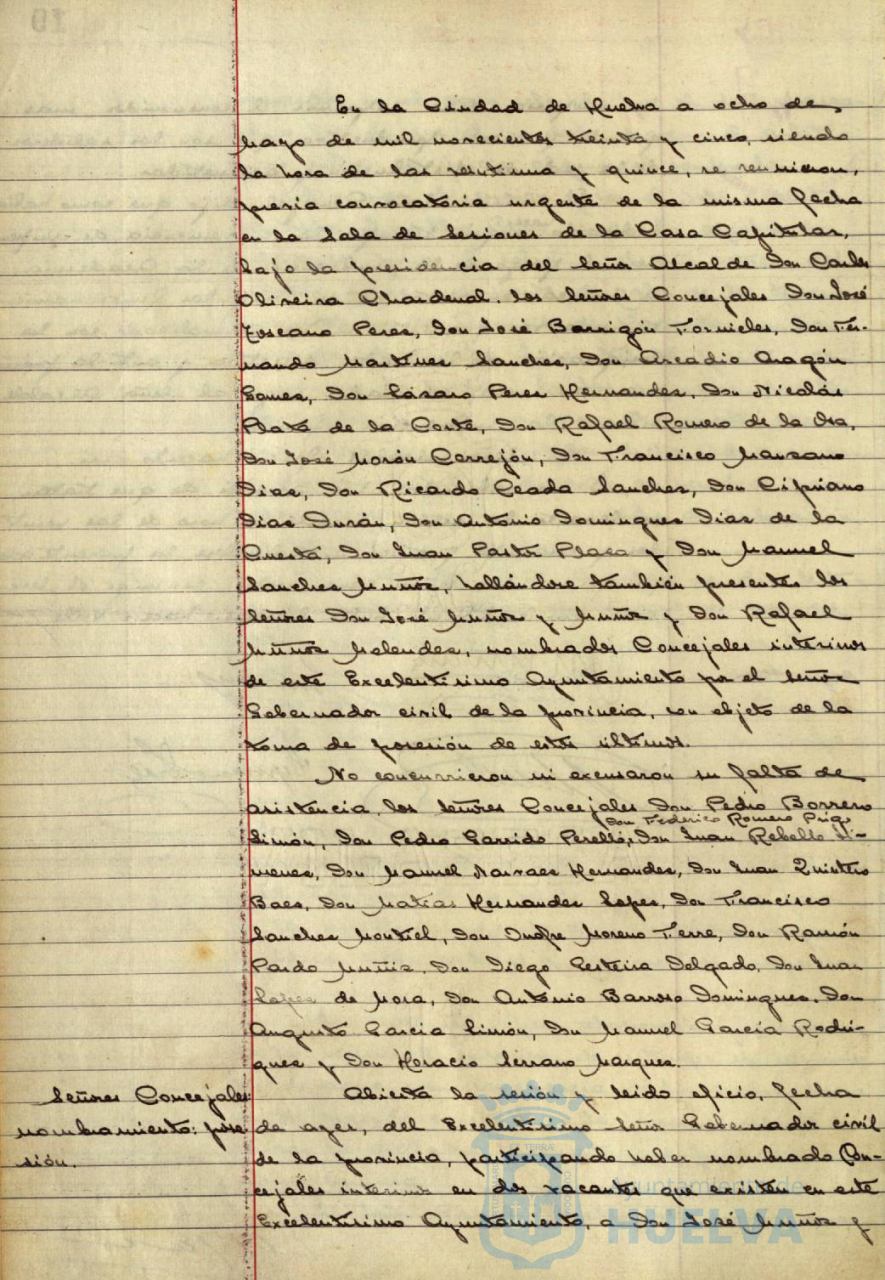 En la Ciudad de Huelva a ocho de
Mayo de mil novecientos treinta y cinco, siendo
la hora de las veintiuna y quince, se reunieron,
previa convocatoria urgente de la misma fecha
en la Sala de Sesiones de la Casa Capitular,
bajo la presidencia del Señor Alcalde Don Carlos
Oliveira Chardenal, los Señores Concejales Don José
Toscano Peres, Don José Barrigón Fornieles, Don Fer-
nando Martines Sanches, Don Arcadio Aragón
Gomes, Don Lásaro Peres Hernandes, Don Nicolás
Plata de la Corte, Don Rafael Romero de la Osa,
Don José Morón Carrejón, Don Francisco Mansano
Dias, Don Ricardo Ceada Sanches, Don Cipriano
Dias Durán, Don Antonio Domingues Dias de la
Cuesta, Don Juan Pastor Plasa y Don Manuel
Sanches Muños, hallándose también presentes los
Señores Don José Muños y Muños y Don Rafael
Muños Melendes, nombrados Concejales interinos
de este Excelentísimo Ayuntamiento por el Señor
Gobernador civil de la provincia, con objeto de la
toma de posesión de estos últimos.
No concurrieron ni excusaron su falta de
asistencia, los Señores Concejales Don Pedro Borrero
Don Federico Romero Prig,
Simón, Don Pedro Garrido Perelló, Don Juan Rebollo Ji-
menes, Don Manuel Narvaes Hernandes, Don Juan Quintero
Baes, Don Matías Hernandes Lopes, Don Francisco
Sanches Montiel, Don Onofre Moreno Ferre, Don Ramón
Pardo Muñis, Don Diego Gesteira Delgado, Don Juan
Lopes de Mora, Don Antonio Barroso Domingues, Don
Augusto Garcia Simón, Don Manuel García Rodri-
gues y Don Horacio Serrano Marques.
Señores Concejales:
nombramiento: pose
sión.
Abierta la sesión y leido oficio, fecha
de ayer, del Excelentísimo Señor Gobernador civil
de la provincia, participando haber nombrado Con-
cejales interinos en dos vacantes que existen en este
Excelentísimo Ayuntamiento, a Don José Muños y
Ayuntamiento de
HUELVA